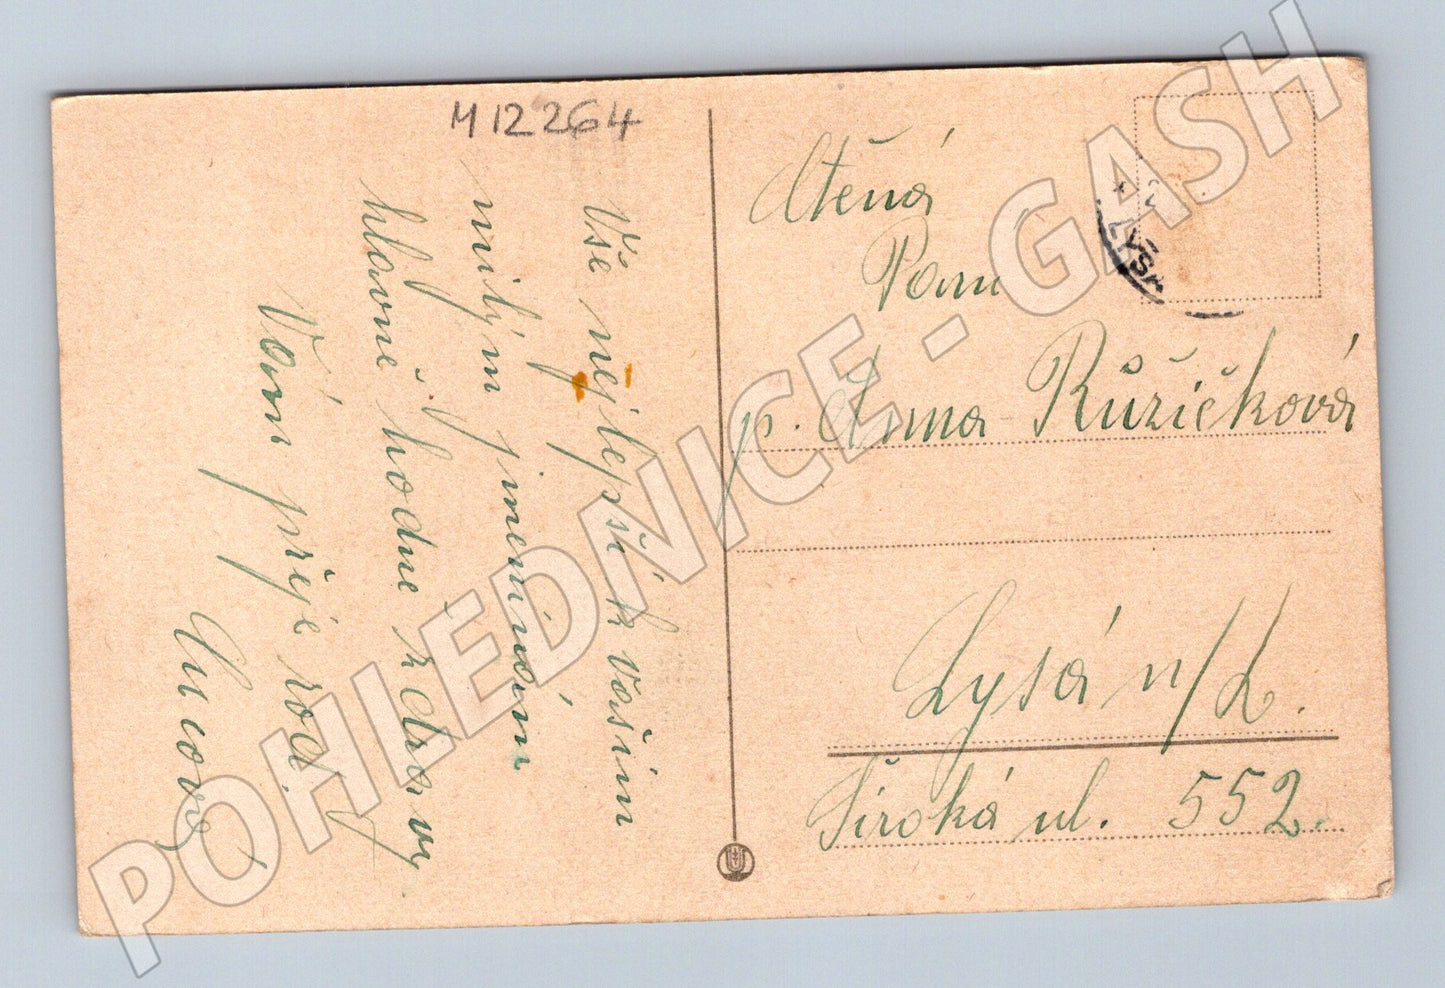 M 12264
Vše nejlepší k Vašim
milým jmeninám
hlavně hodně zdraví
Vám přeje rod.
Ctěná
Paní
p. Anna Růžičková
Lysá n/L.
Široká ul. 552.
* LYSÁ
POHLEDNICE - GASH